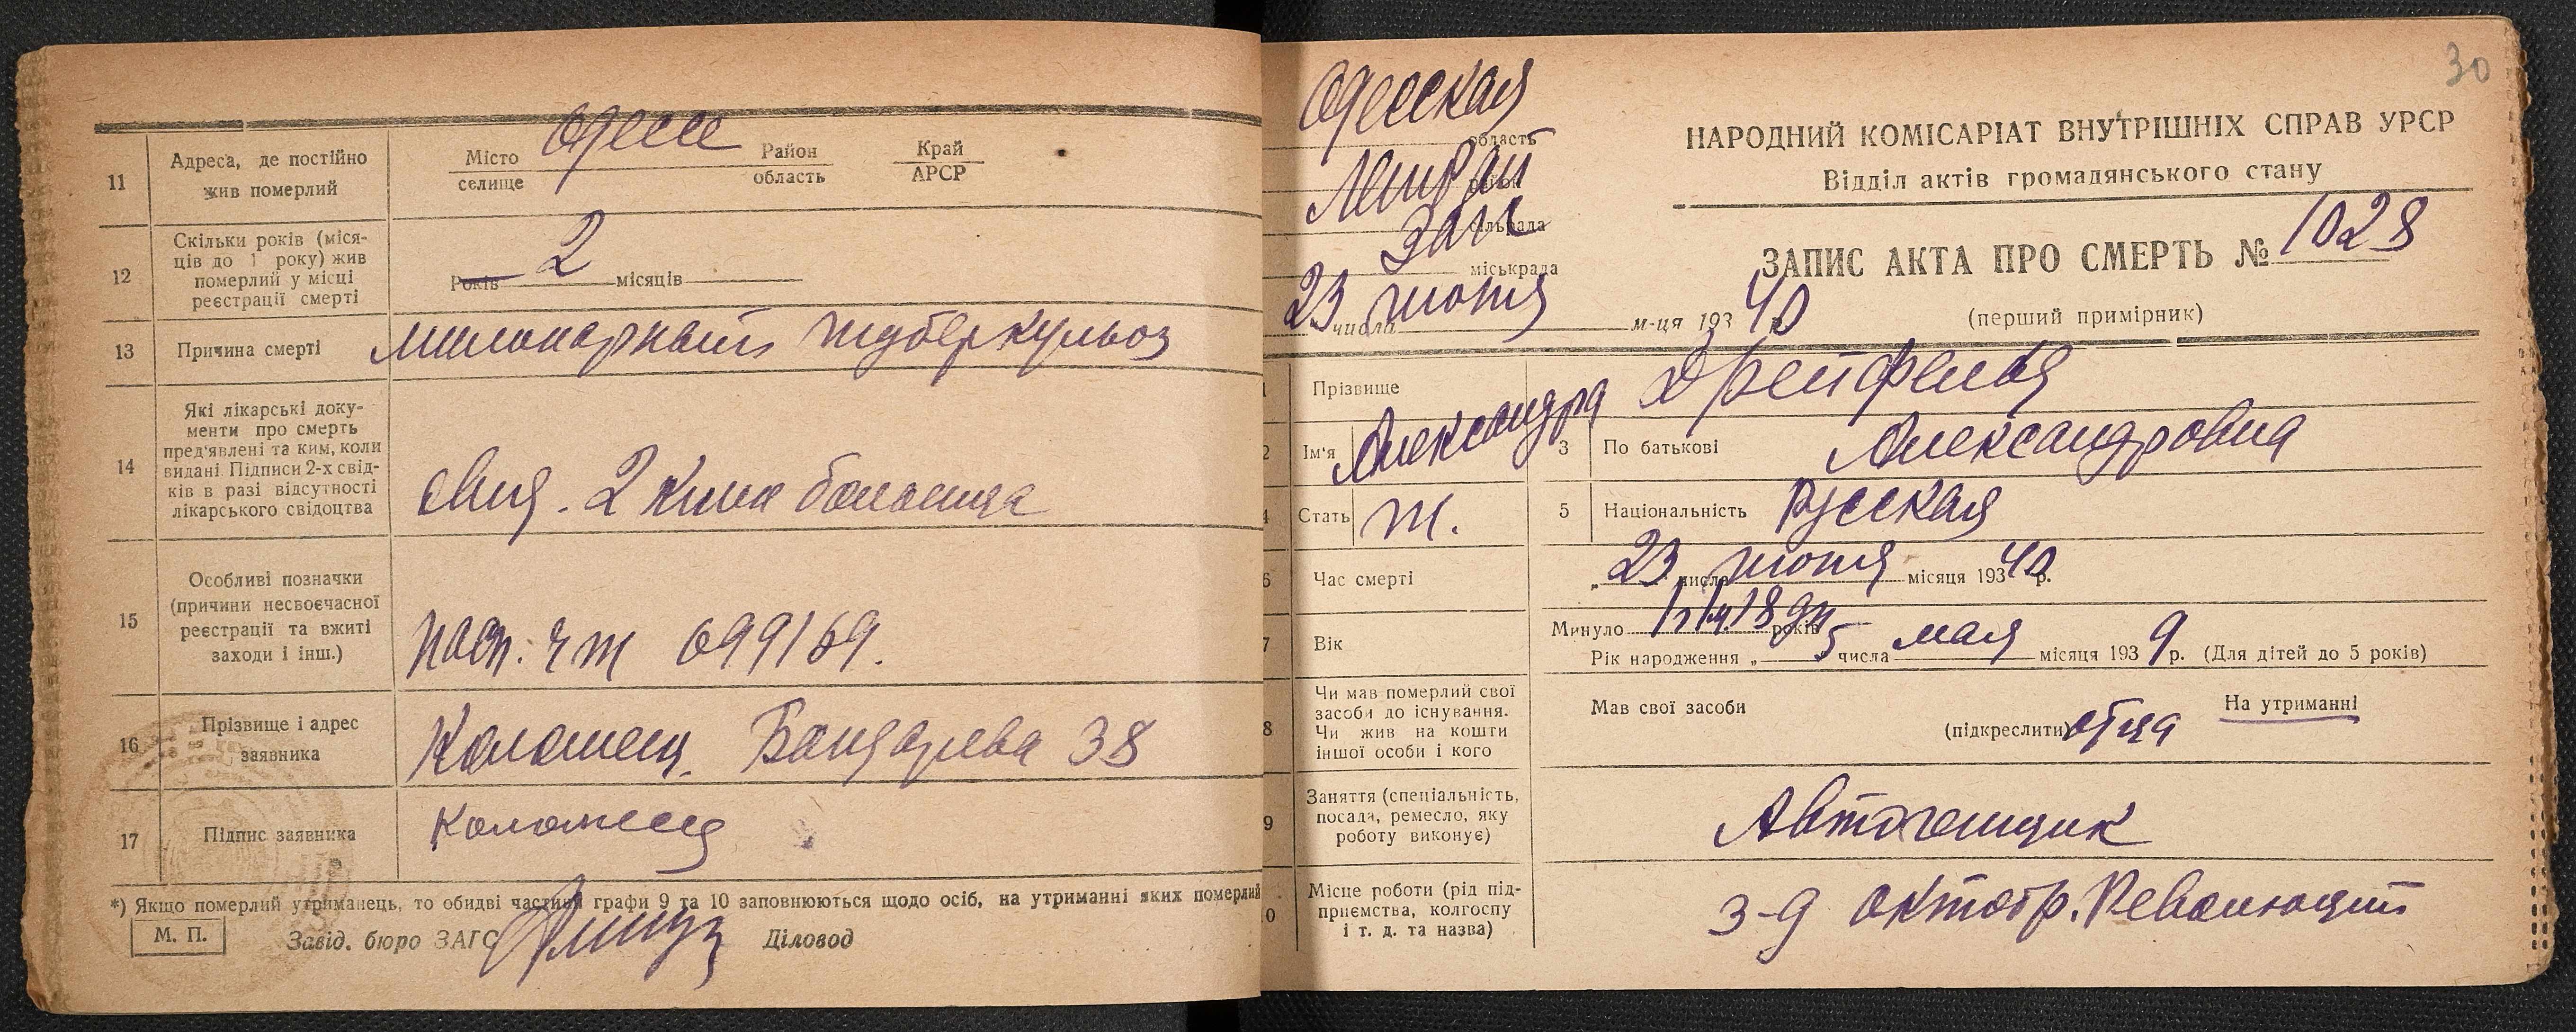 11
Адреса, де постійно
жив померлий
Місто
селище
Одессе
Район
область
Край
АРСР
12
Скільки років (міся-
ців до 1 року) жив
померлий у місці
реєстрації смерті
Років 2 місяців
13
Причина смерті
туберкульоз
14
Які лікарські доку-
менти про смерть
пред'явлені та ким, коли
видані. Підписи 2-х свід-
ків в разі відсутності
лікарського свідоцтва
свид. 2 клин больница
15
Особливі позначки
(причини несвоєчасної
реєстрації та вжиті
заходи і інш.)
699169.
16
Прізвище і адрес
заявника
Коломеец. Бандарева 38
17
Підпис заявника
Коломеец
*) Якщо померлий утриманець, то обидві частини графи 9 та 10 заповнюються щодо осіб, на утриманні яких померлий
М. П.
Завід. бюро ЗАГС
Діловод
30
Одесская
область
Ленрай
район
Загс
сільрада
міськрада
23 числа июня м-ця 193 40
НАРОДНИЙ КОМІСАРІАТ ВНУТРІШНІХ СПРАВ УРСР
Відділ актів громадянського стану
ЗАПИС АКТА ПРО СМЕРТЬ № 1028
(перший примірник)
1
Прізвище
2
Ім'я
Александра
3
По батькові
Александровна
4
Стать
ж.
5
Національність
Русская
6
Час смерті
„ 23 числа июня місяця 193 40 р.
7
Вік
Минуло 1 г 1 м. 18 дн років
Рік народження „ 5 числа мая місяця 193 9 р. (Для дітей до 5 років)
8
Чи мав померлий свої
засоби до існування.
Чи жив на кошти
іншої особи і кого
Мав свої засоби
(підкреслити)
отца
На утриманні
9
Заняття (спеціальність,
посада, ремесло, яку
роботу виконує)
Автогенщик
0
Місце роботи (рід під-
приємства, колгоспу
і т. д. та назва)
з-д Октябр. Революции